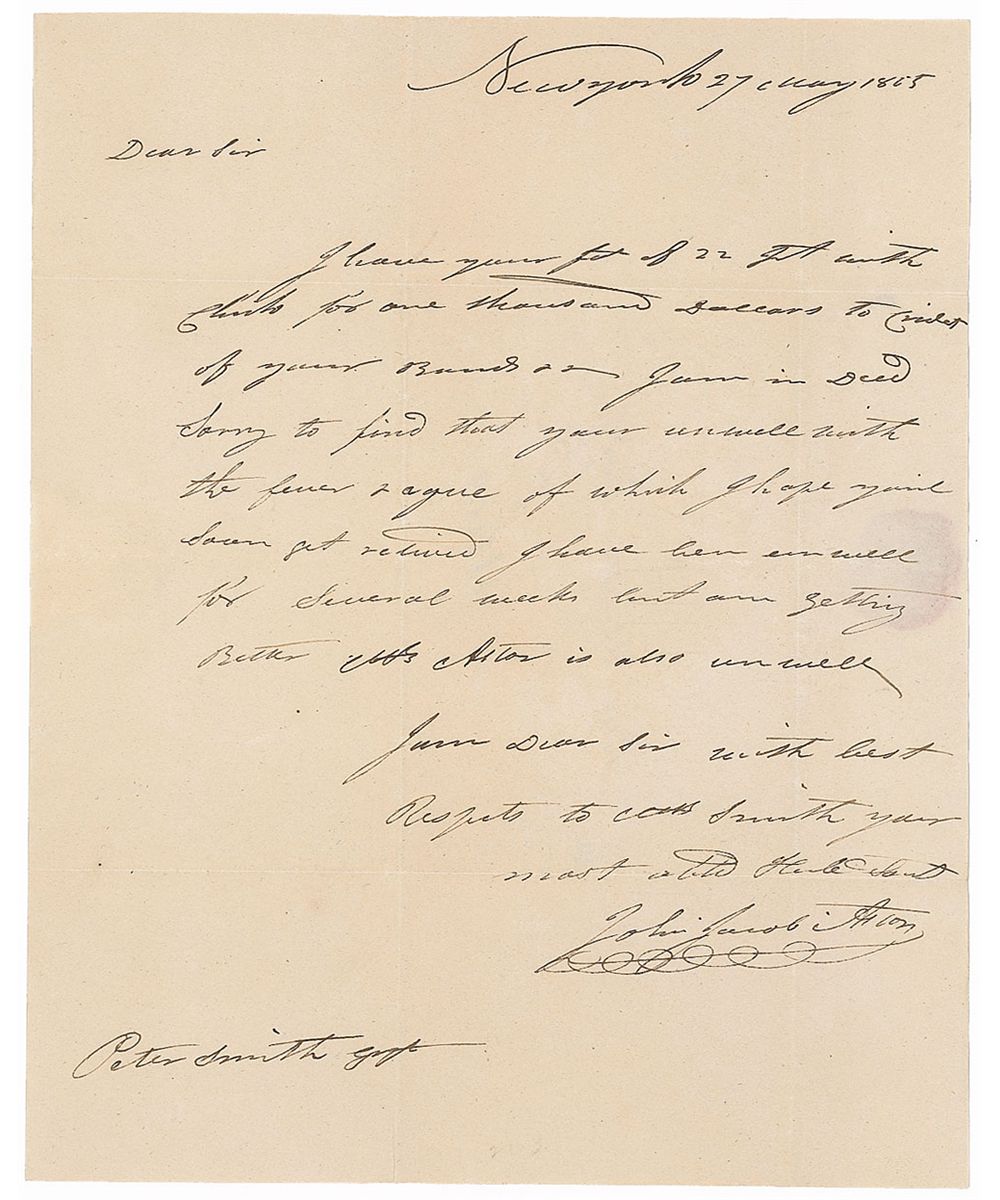 Newyork 27 May 18
Dear Sir
I have your of 22 with
for one thousand Dollars to
of your I am in Deed
Sorry to find that your unwell with
the fever & ague of which I hope
Soon get I have ben unwell
for Several weeks but am getting
Better Mrs Astor is also unwell
I am Dear Sir with best
Respets to Mrs Smith your
most
John Jacob Astor
Peter Smith